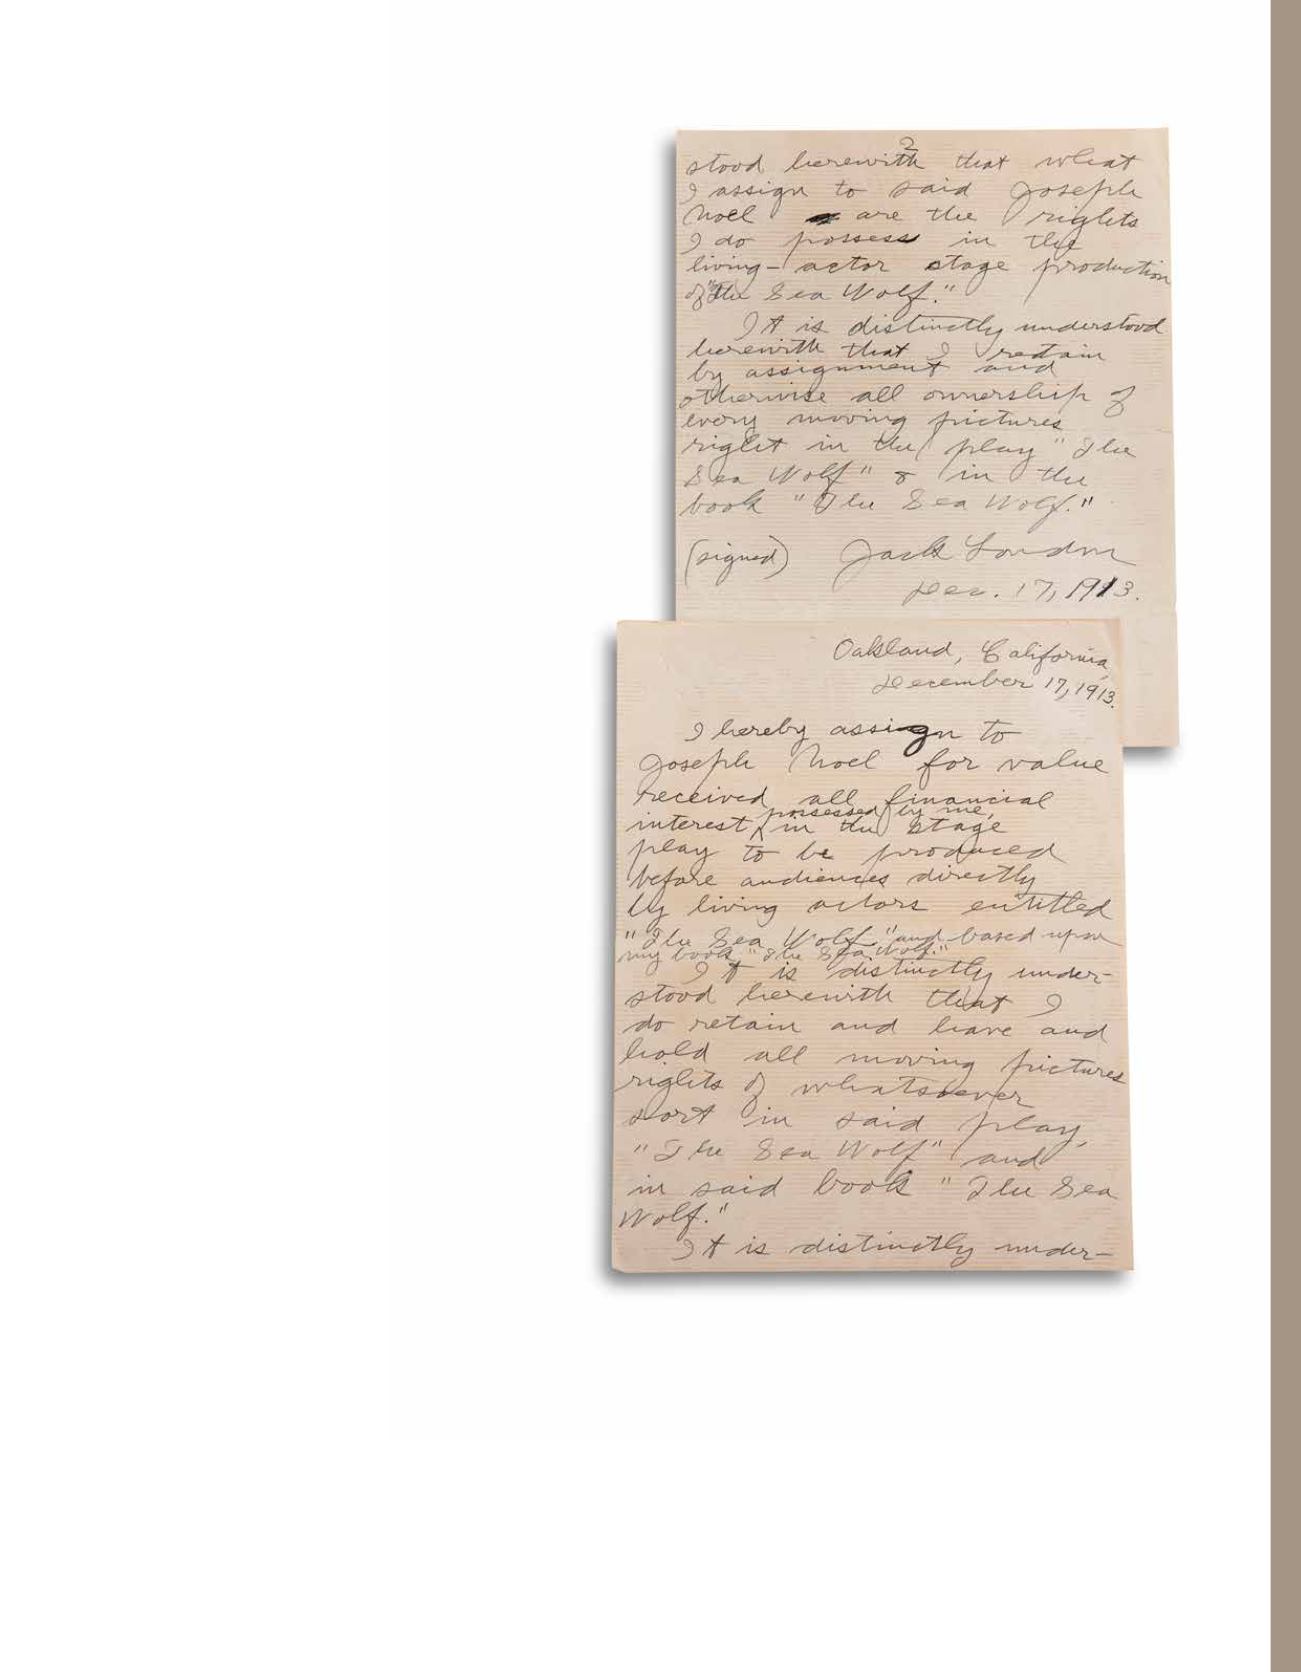 Oakland, California,
December 17, 1913.
I hereby assign to
Joseph Noel for value
received all financial
possessed by me,
interest ^ in the stage
play to be produced
before audiences directly
by living actors entitled
"The Sea Wolf" and based upon
my book "The Sea Wolf."
It is distinctly under-
stood herewith that I
do retain and have and
hold all moving pictures
rights of whatsoever
sort in said play,
"The Sea Wolf" and
in said book "The Sea
Wolf."
It is distinctly under-
2
stood herewith that what
I assign to said Joseph
Noel are the rights
I do possess in the
living-actor stage production
of "The Sea Wolf."
It is distinctly understood
herewith that I retain
by assignment and
otherwise all ownership of
every moving pictures
right in the play "The
Sea Wolf" & in the
book "The Sea Wolf."
(signed) Jack London
Dec. 17, 1913.